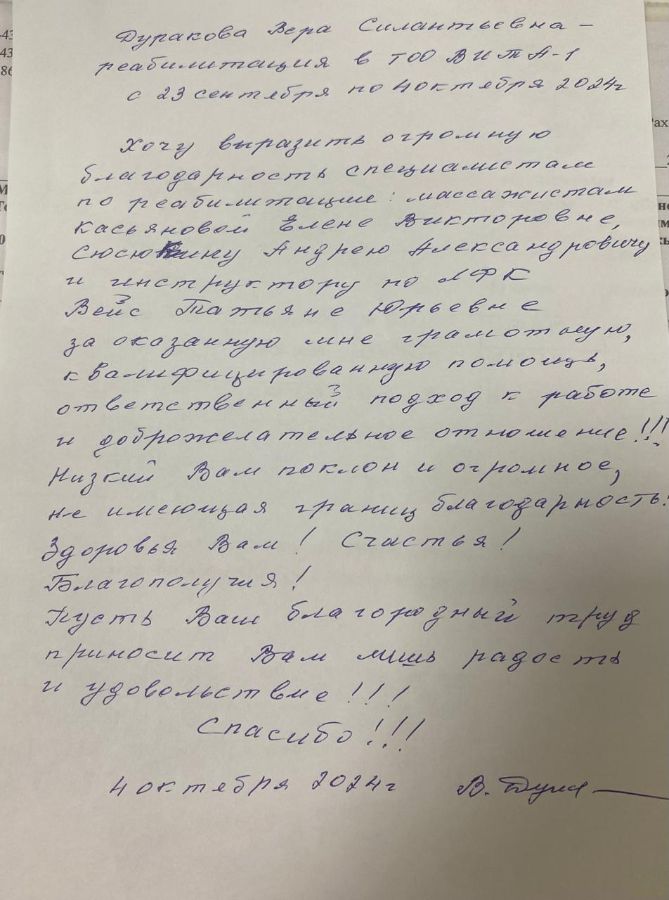 Дуракова Вера Силантьевна –
реабилитация в ТОО ВИТА-1
с 23 сентября по 4 октября 2024г
Хочу выразить огромную
благодарность специалистам
по реабилитации: массажистам
Касьяновой Елене Викторовне,
Сюсюкину Андрею Александровичу
и инструктору по ЛФК
Вейс Татьяне Юрьевне
за оказанную мне грамотную,
квалифицированную помощь,
ответственный подход к работе
и доброжелательное отношение!!!
Низкий Вам поклон и огромное,
не имеющая границ благодарность!
Здоровья Вам! Счастья!
Благополучия!
Пусть Ваш благородный труд
приносит Вам лишь радость
и удовольствие!!!
Спасибо!!!
4 октября 2024г В.